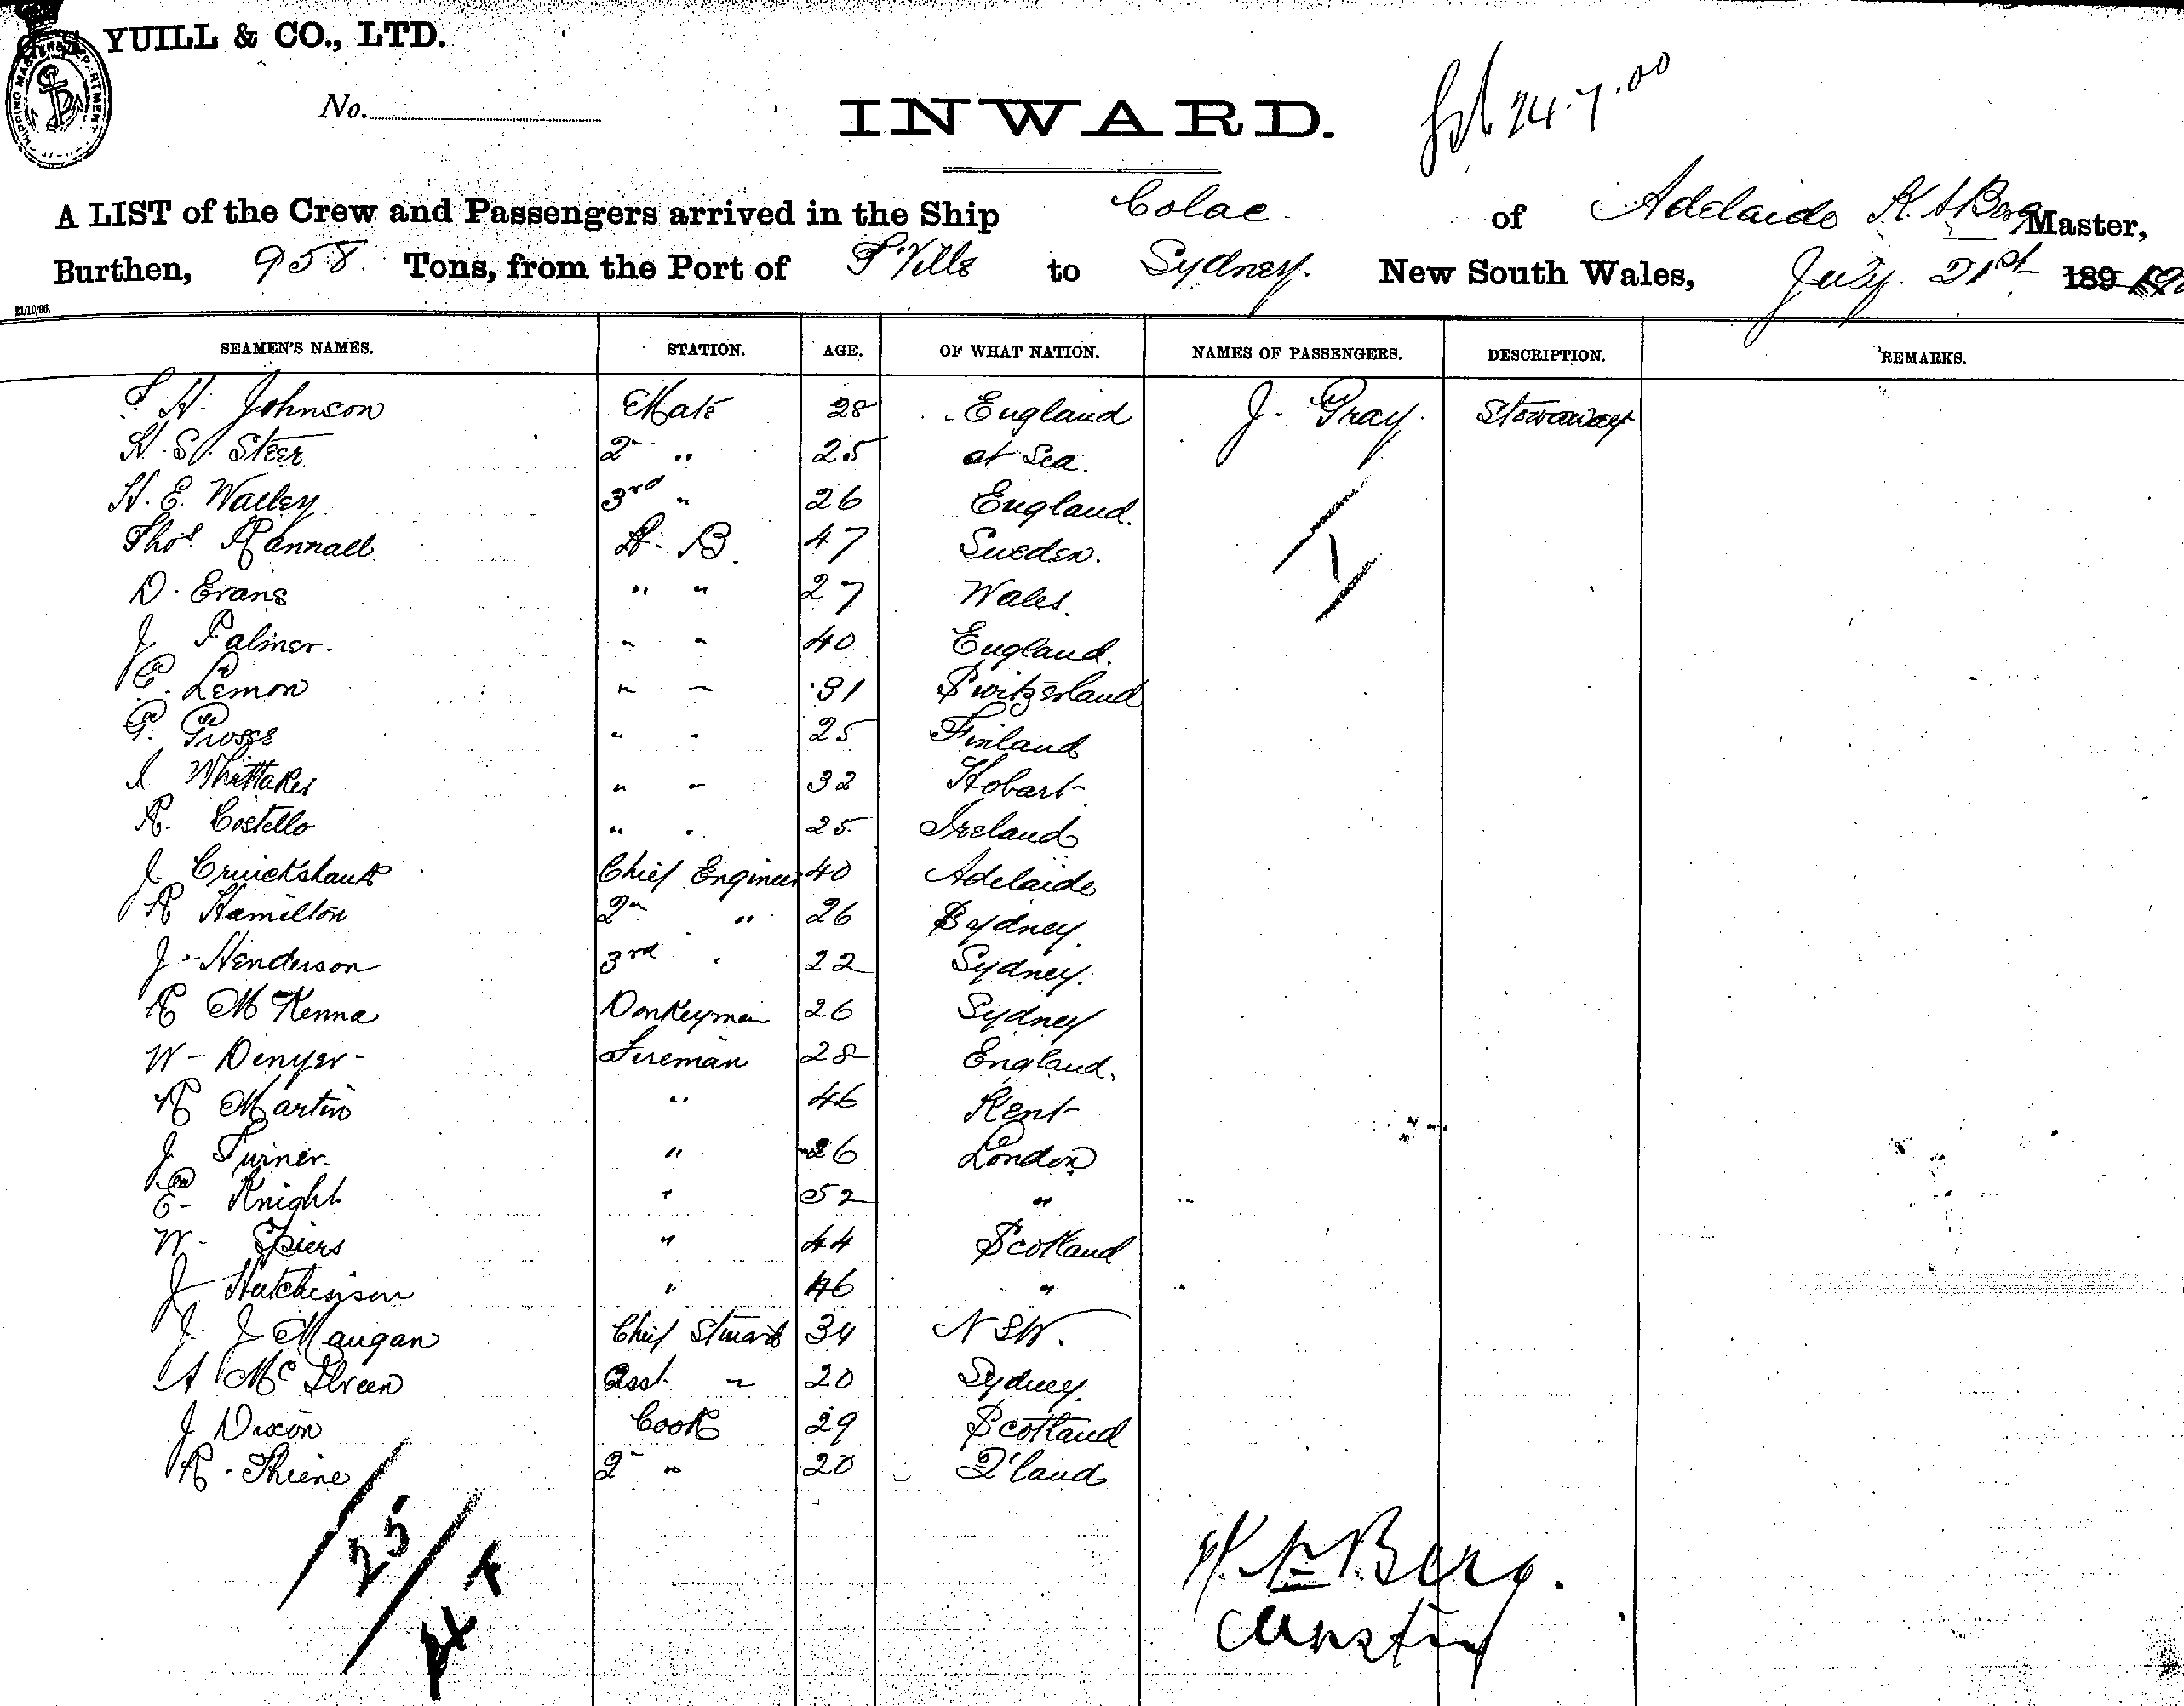 YUILL & CO., LTD.
SHIPPING MASTER'S DEPARTMENT
No.
INWARD.
24.7.00
A LIST of the Crew and Passengers arrived in the Ship Colac of Adelaide K. A Berg Master,
Burthen, 958 Tons, from the Port of T'Ville to Sydney. New South Wales, July. 21st 189
21/10/96.
SEAMEN'S NAMES. STATION. AGE. OF WHAT NATION. NAMES OF PASSENGERS. DESCRIPTION. REMARKS.
F. H. Johnson Mate 28 England J. Gray. Stowaway
H. S. Steer 2nd " 25 at Sea.
H. E. Walley 3rd " 26 England.
Thos. Rannall A. B. 47 Sweden.
D. Evans " " 27 Wales.
J Palmer. " " 40 England.
C. Lemon " " 31 Switzerland
G. Grosse " " 25 Finland
I Whittaker " " 32 Hobart
R. Costello " " 25 Ireland
J. Cruickshank Chief Engineer 40 Adelaide
R Hamilton 2nd " 26 Sydney.
J. Henderson 3rd " 22 Sydney.
R McKenna Donkeyman 26 Sydney
W - Denyer - Fireman 28 England.
R Martin " 46 Kent
J Turner. " 26 London
E - Knight " 52 "
W - Spiers " 44 Scotland
J Hutchinson " 46 "
J. J Maugan Chief Steward 34 NSW.
A McIlveen Asst. " 20 Sydney.
J Dixon Cook 29 Scotland
R. Thiene 2nd " 20 Q'land
1
25
K. A Berg.